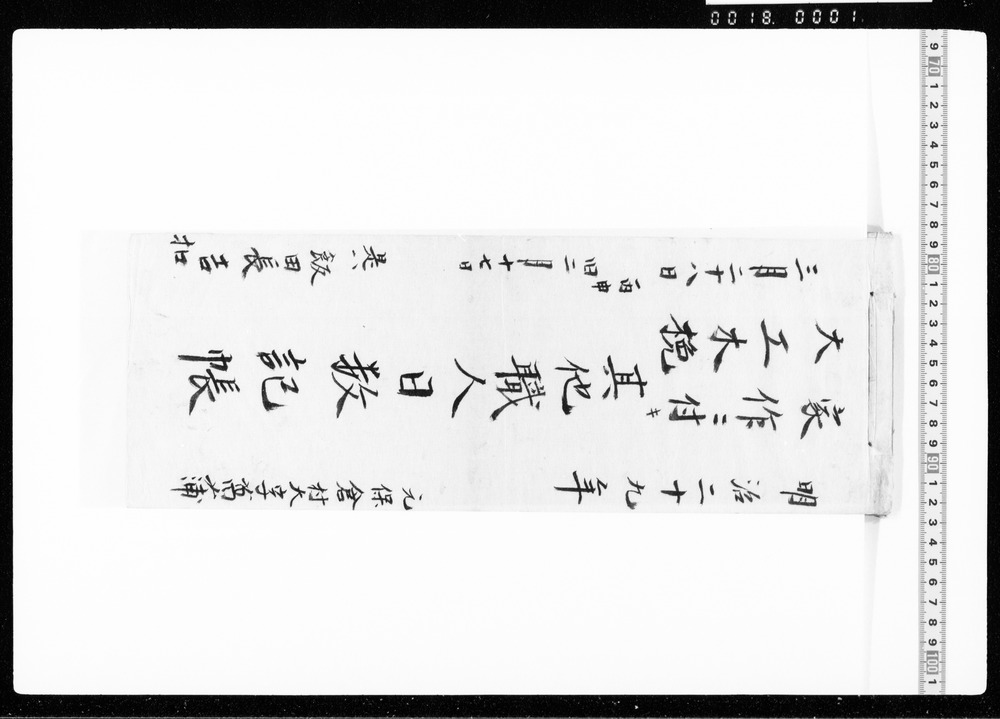 0018. 0001.
明治二十九年
元保倉村大字菖蒲
家作ニ付キ
大工木挽
其他職人日数記帳
三月二十八日
丙申
旧二月十七日
飯田長吉
扣
9 70 1 2 3 4 5 6 7 8 9 80 1 2 3 4 5 6 7 8 9 90 1 2 3 4 5 6 7 8 9 100 1